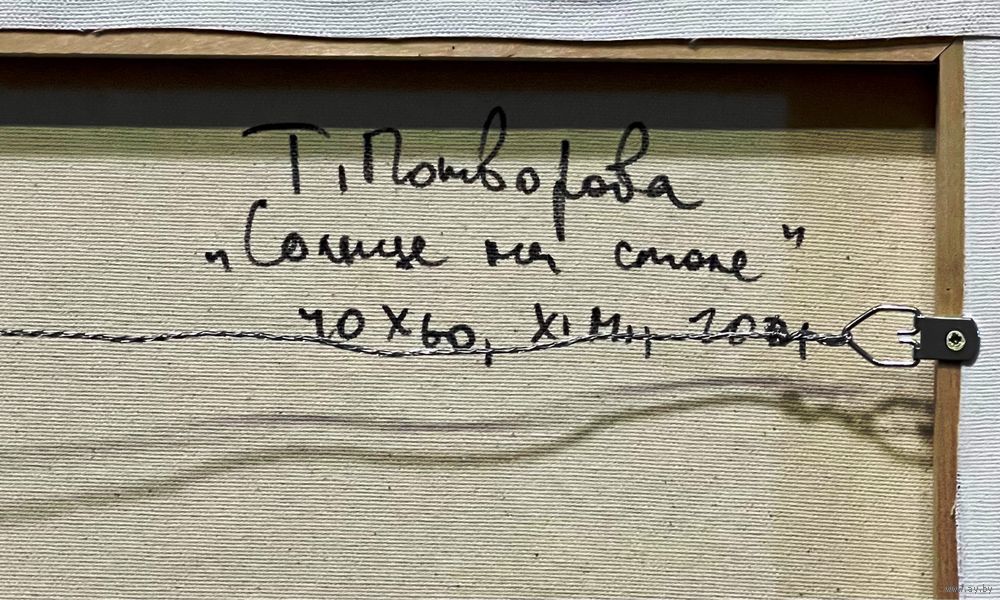 Т. Потворова
„Солнце на столе"
40х60, х.м.,
www.ay.by